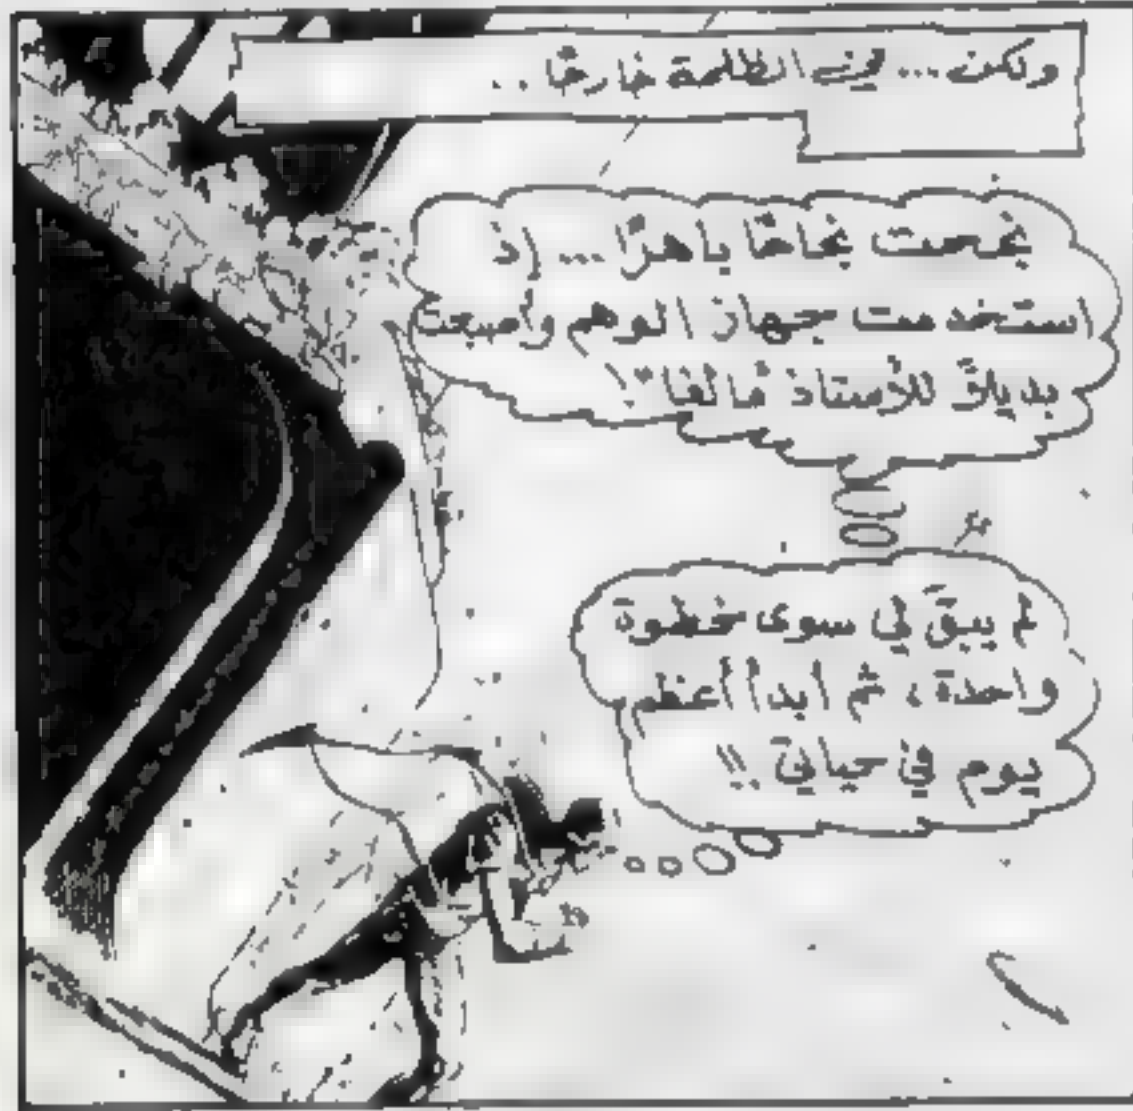 ولكن... في الظلمة خارجًا..
نجحت نجاحًا باهرًا... إذ
استخدمت جهاز الوهم وأصبحت
بديلاً للأستاذ
لم يبقَ لي سوى خطوة
واحدة، ثم أبدأ أعظم
يوم في حياتي !!